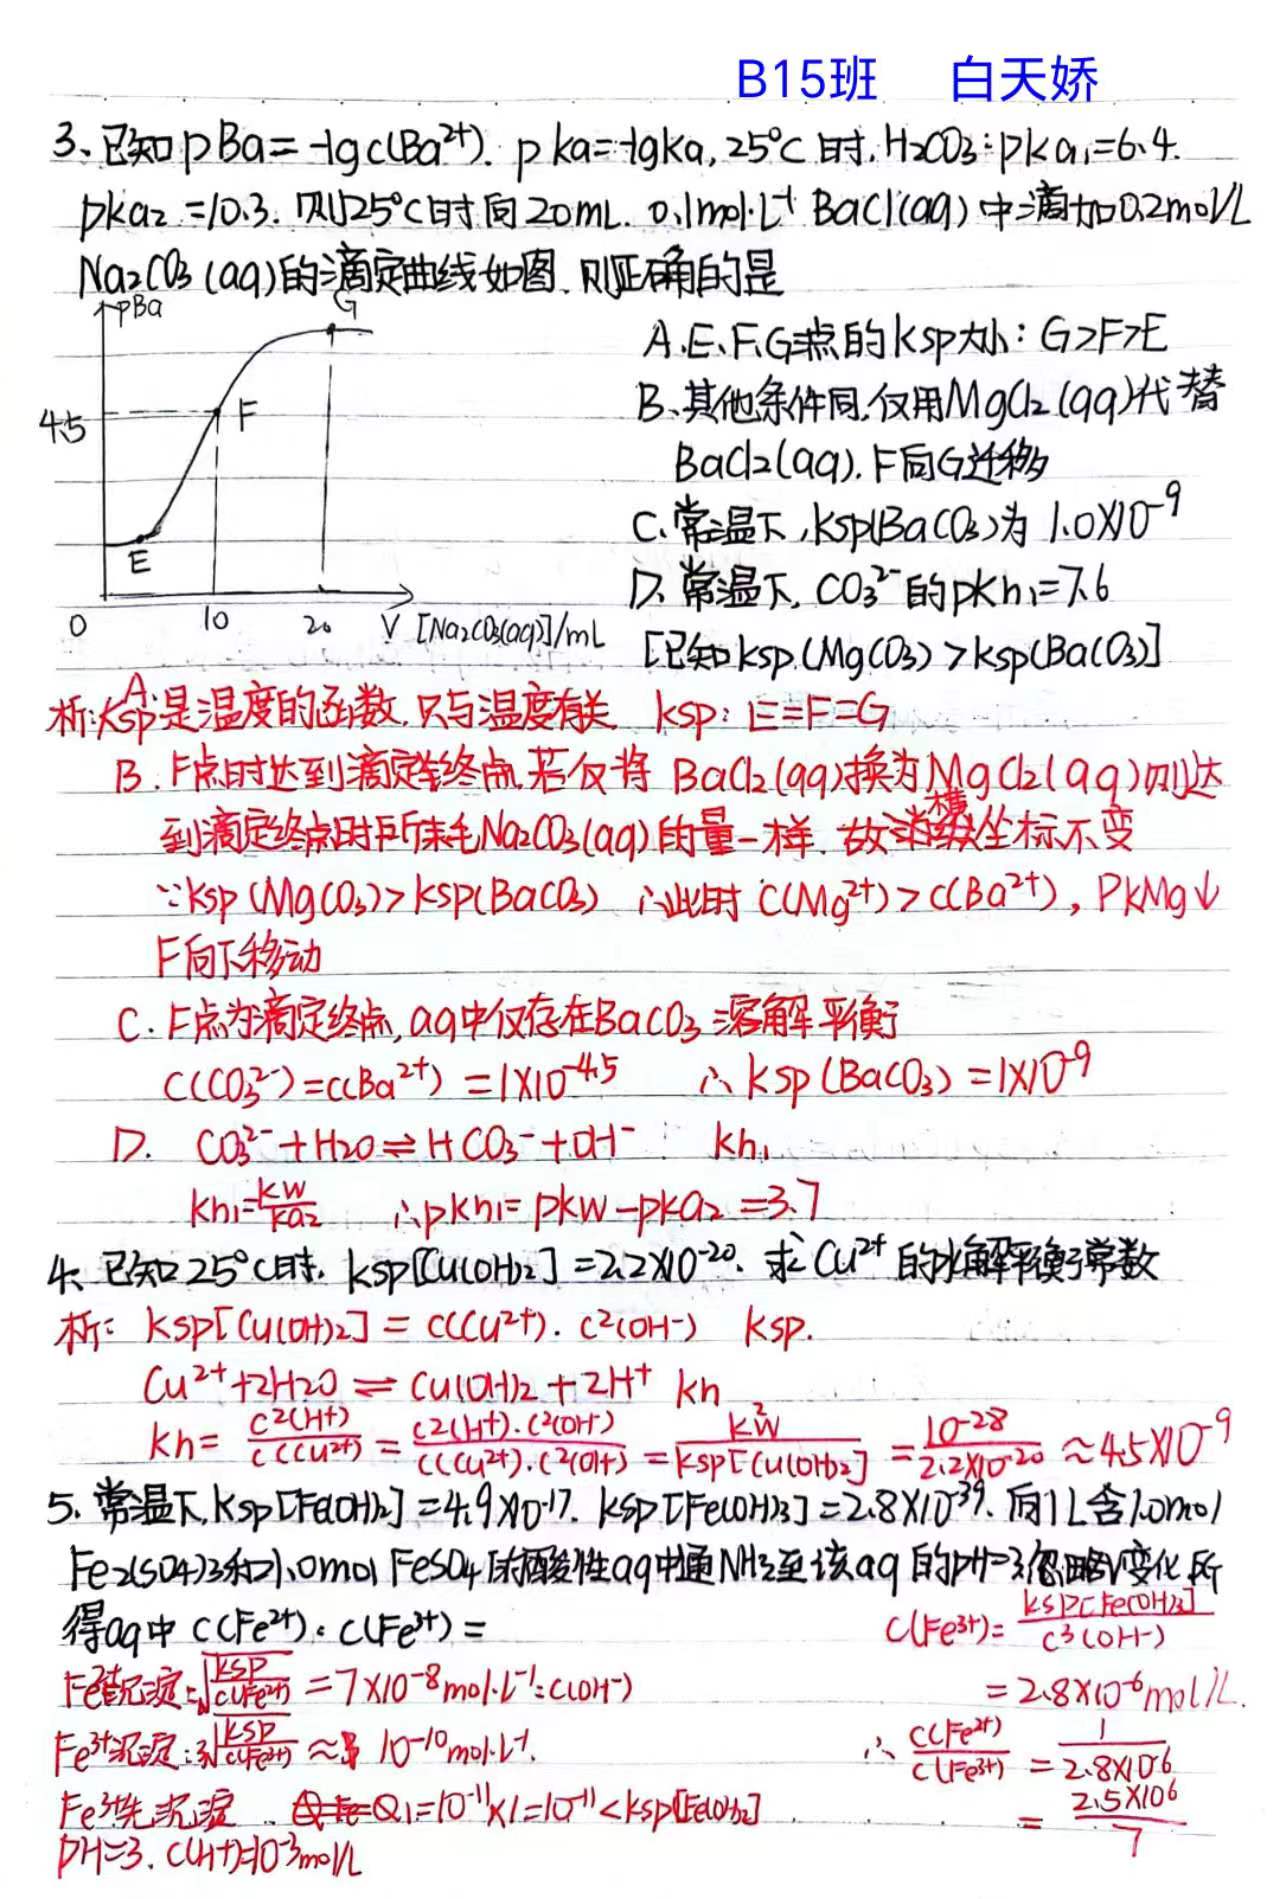 B15班 白天娇
3、已知pBa=-lgc(Ba²⁺). pka=-lgka, 25°C时, H₂CO₃: pka₁=6.4.
pka₂=10.3. 则25°C时向20mL. 0.1mol·L⁻¹ BaCl(aq)中滴加0.2mol/L
Na₂CO₃(aq)的滴定曲线如图. 则正确的是
pBa
G
4.5
F
E
0 10 20 V [Na₂CO₃(aq)]/mL
A.E、F、G三点的ksp大小: G>F>E
B、其他条件同,仅用MgCl₂(aq)代替
BaCl₂(aq). F向G迁移
C.常温下,ksp(BaCO₃)为 1.0X10⁻⁹
D.常温下, CO₃²⁻的pkh₁=7.6
[已知ksp.(MgCO₃)>ksp(BaCO₃)]
析: A: ksp是温度的函数, 只与温度有关 ksp: E=F=G
B. F点时达到滴定终点,若仅将 BaCl₂(aq)换为MgCl₂(aq)则达
到滴定终点时所未毛Na₂CO₃(aq)的量一样. 故横坐标不变
∵ksp(MgCO₃)>ksp(BaCO₃) ∴此时 C(Mg²⁺)>c(Ba²⁺), PkMg↓
F向下移动
C. F点为滴定终点, aq中仅存在BaCO₃ 溶解平衡
C(CO₃²⁻)=c(Ba²⁺)=1X10⁻⁴·⁵ ∴ksp(BaCO₃)=1X10⁻⁹
D. CO₃²⁻+H₂O⇌HCO₃⁻+OH⁻ kh₁
kh₁=kw/ka₂ ∴pkh₁=pkw-pka₂=3.7
4、已知25°C时. ksp[Cu(OH)₂]=2.2X10⁻²⁰. 求Cu²⁺的水解平衡常数
析: ksp[Cu(OH)₂]=c(Cu²⁺)·c²(OH⁻) ksp.
Cu²⁺+2H₂O⇌Cu(OH)₂+2H⁺ kh
kh=c²(H⁺)/c(Cu²⁺)=c²(H⁺)·c²(OH⁻)/c(Cu²⁺)·c²(OH⁻)=kw²/ksp[Cu(OH)₂]=10⁻²⁸/2.2X10⁻²⁰≈4.5X10⁻⁹
5. 常温下,Ksp[Fe(OH)₂]=4.9X10⁻¹⁷. ksp[Fe(OH)₃]=2.8X10⁻³⁹. 向1L含1.0mol
Fe₂(SO₄)₃和1.0mol FeSO₄的酸性aq中通NH₃至该aq的pH=3忽略V变化 所
得aq中 c(Fe²⁺):c(Fe³⁺)=
c(Fe³⁺)=ksp[Fe(OH)₃]/c³(OH⁻)
Fe²⁺沉淀:√ksp/c(Fe²⁺)=7X10⁻⁸mol·L⁻¹=c(OH⁻)
=2.8X10⁻⁶mol/L.
Fe³⁺沉淀:³√ksp/c(Fe³⁺)≈ 10⁻¹⁰mol·L⁻¹.
∴c(Fe²⁺)/c(Fe³⁺)=1/2.8X10⁻⁶
Fe³⁺先沉淀 Q₁=10⁻¹¹X1=10⁻¹¹<ksp[Fe(OH)₂]
=2.5X10⁶/7
PH=3. c(H⁺)=10⁻³mol/L